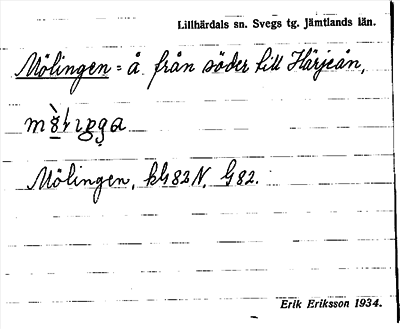 Lillhärdals sn. Svegs tg. Jämtlands län.
Mölingen = å från söder till Härjeån,
Mölingen, kh 82 N. G 82.
Erik Eriksson 1934.